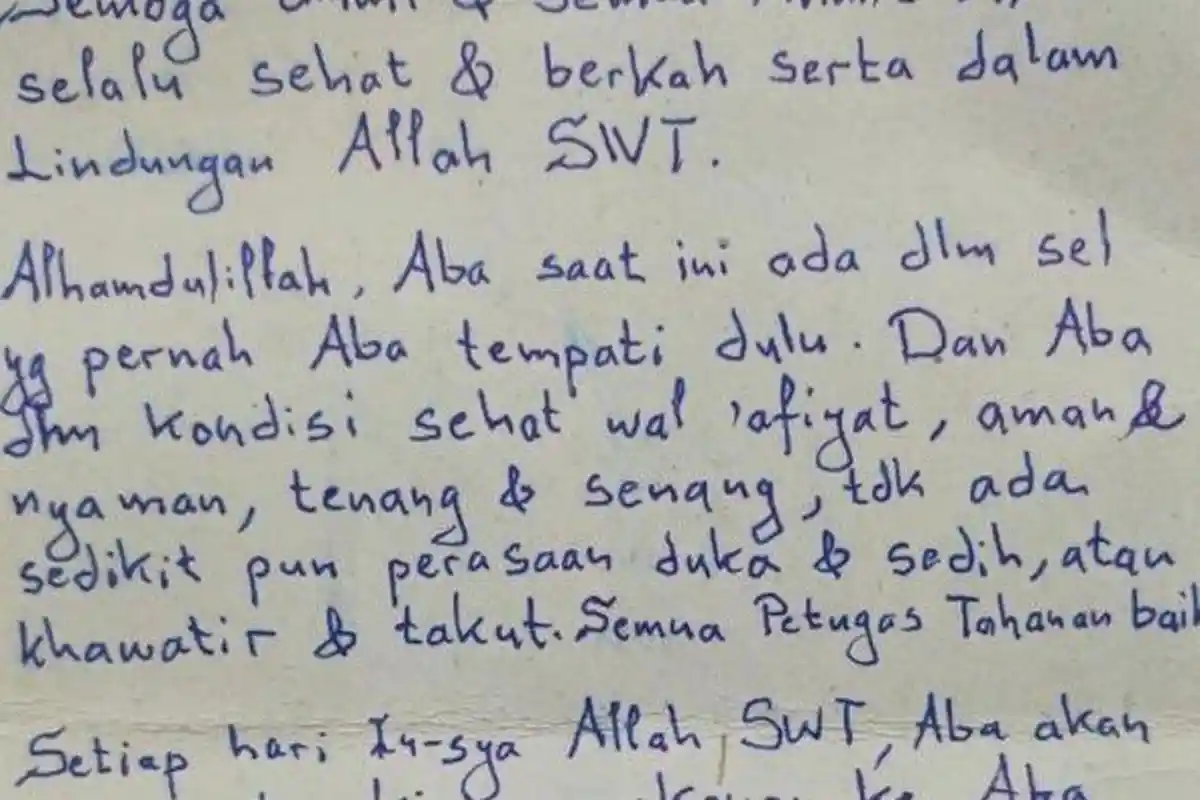 Semoga
selalu sehat & berkah serta dalam
Lindungan Allah SWT.
Alhamdulillah, Aba saat ini ada dlm sel
yg pernah Aba tempati dulu. Dan Aba
dlm kondisi sehat wal 'afiyat, aman &
nyaman, tenang & senang, tdk ada
sedikit pun perasaan duka & sedih, atau
khawatir & takut. Semua Petugas Tahanan baik
Setiap hari In-sya Allah SWT, Aba akan
ke Aba